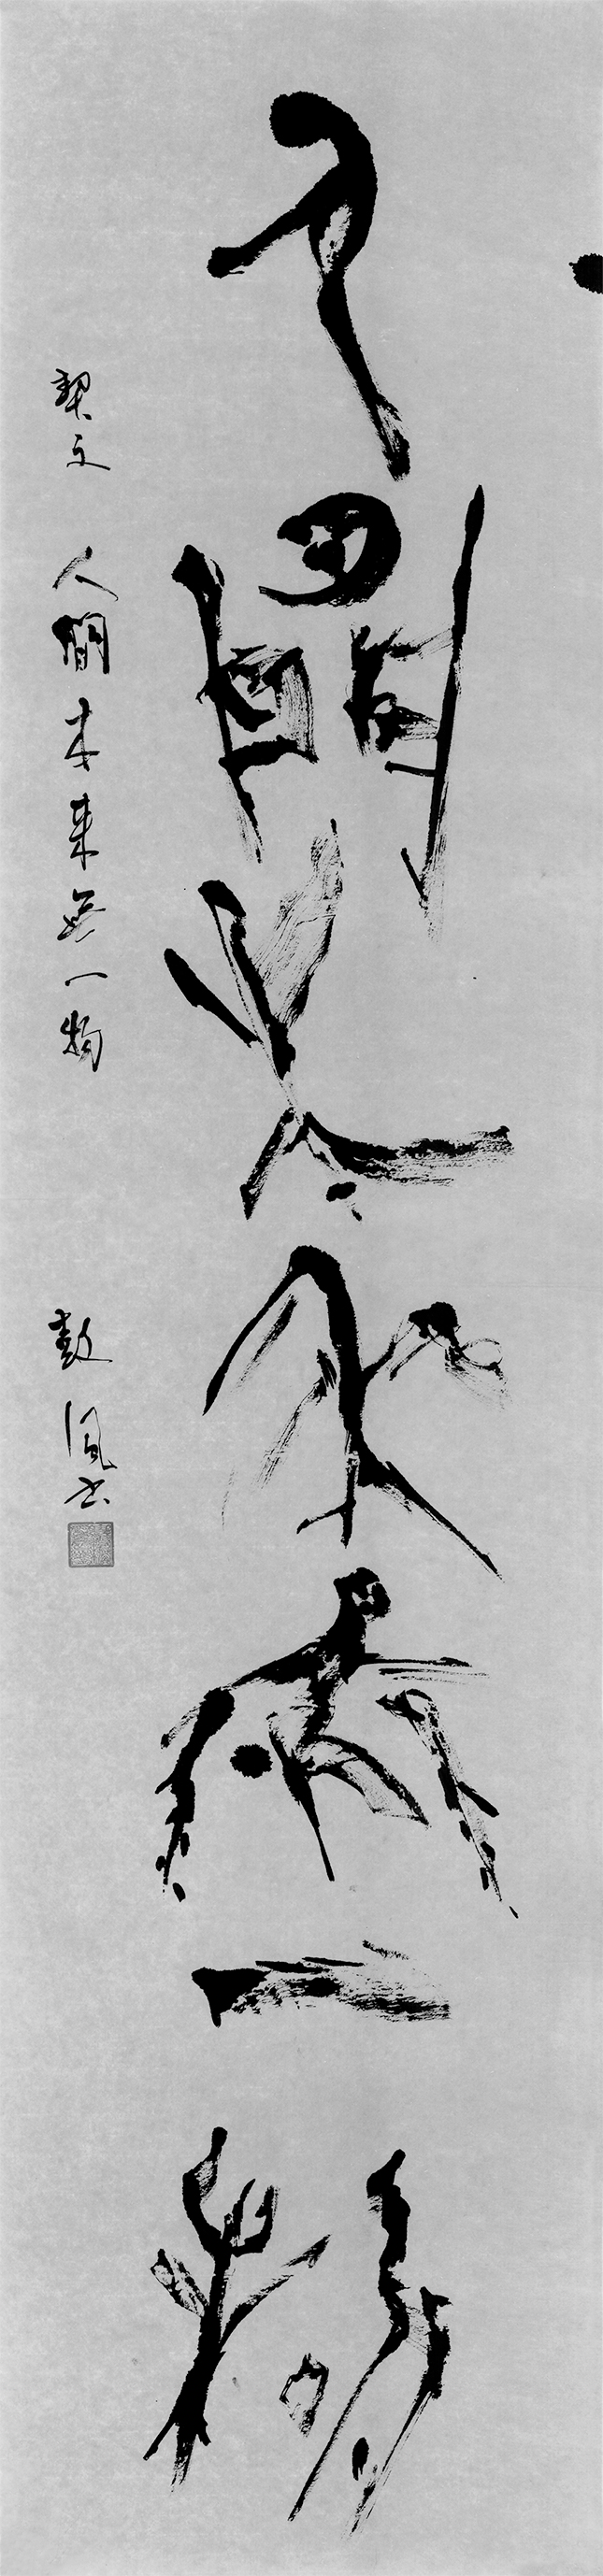 人間本来無一物
契文 人間本来無一物 鼓風书